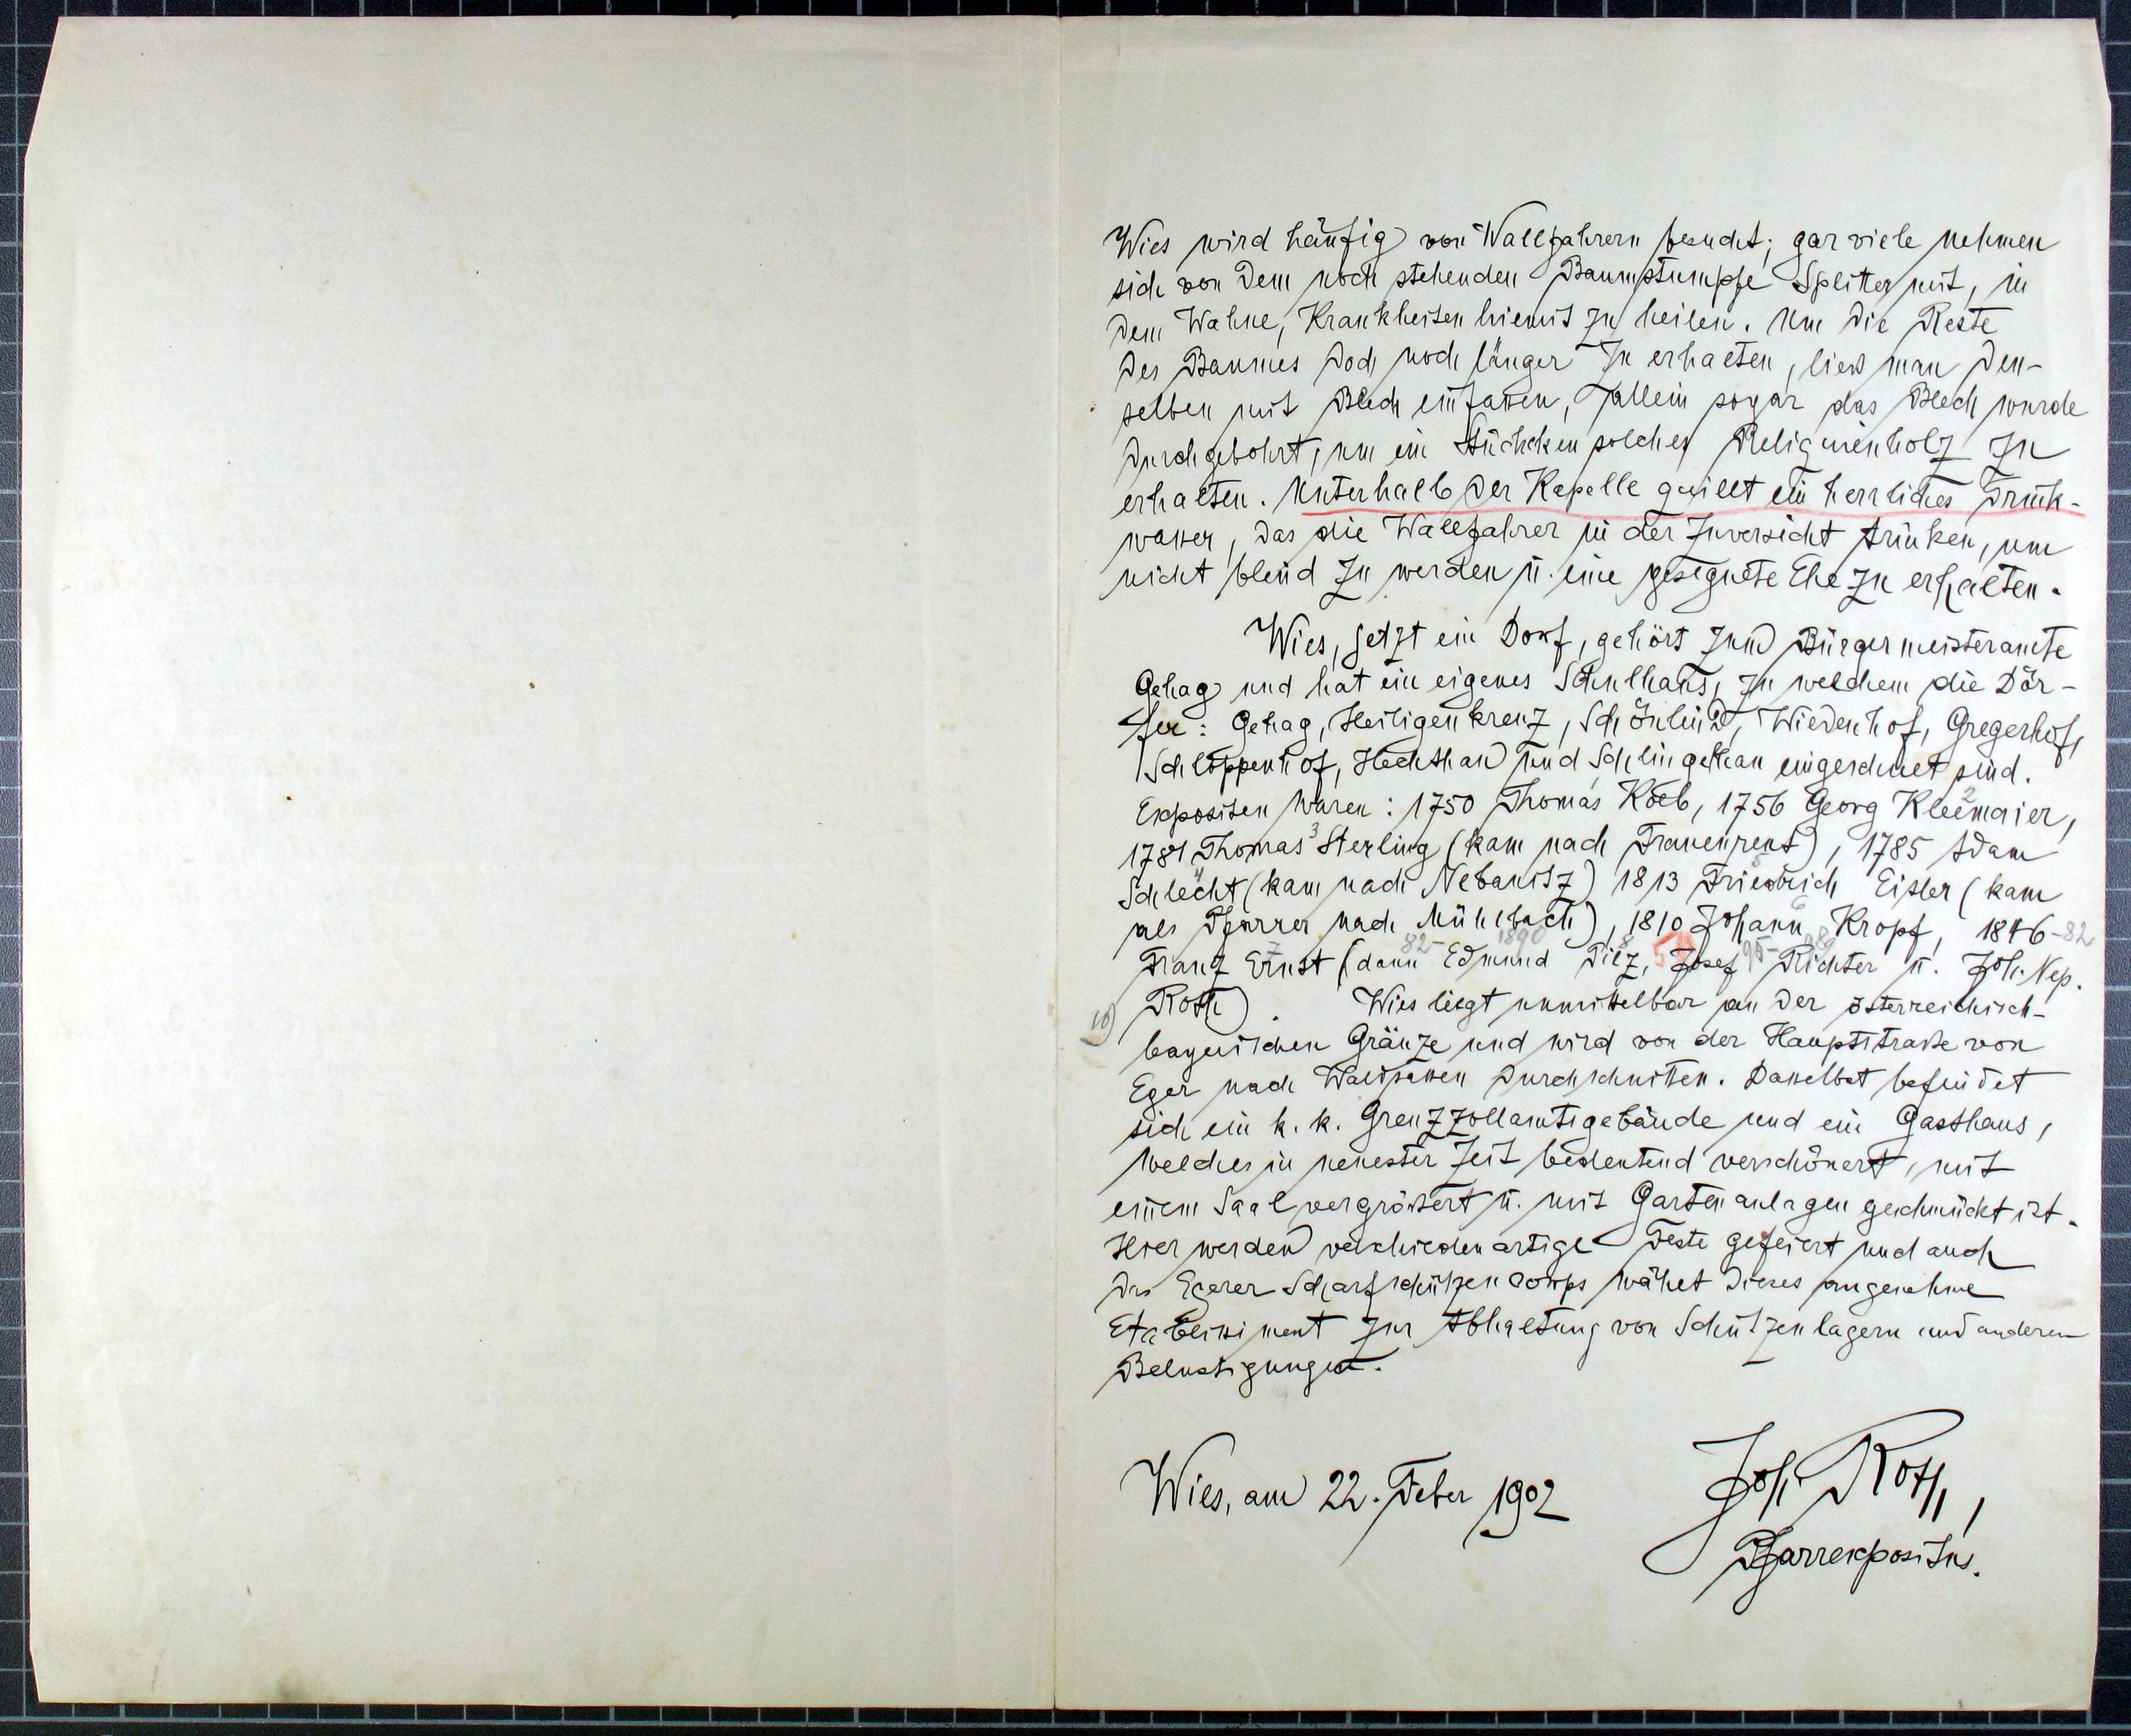 Wies wird häufig von Wallfahrern besucht; gar viele nehmen
sich von dem noch stehenden Baumstumpfe Splitter mit, in
dem Wahne, Krankheiten hiemit zu heilen. Um die Reste
des Baumes doch noch länger zu erhalten, liess man den-
selben mit Blech einfassen, allein sogar das Blech wurde
durchgebohrt, um ein Stückchen solches Reliquienholz zu
erhalten. Unterhalb der Kapelle quillt ein herrliches Trink-
wasser, das die Wallfahrer in der Zuversicht trinken, um
nicht blind zu werden u. eine gesegnete Ehe zu erhalten.
Wies, jetzt ein Dorf, gehört zum Bürgermeisteramte
Gehag und hat ein eigenes Schulhaus, zu welchem die Dör-
fer: Gehag, Heiligenkreuz, Schönlind, Wiedenhof, Gregerhof,
Schloppenhof, Hechthau und Schlingelhau eingeschult sind.
Expositen waren: 1750 Thomas Kolb, 1756 Georg Kleemaier, 2
1781 Thomas Sterling (kam nach Frauenreut), 1785 Adam 3
Schlecht (kam nach Nebanitz) 1813 Friedrich Eisler (kam 4 5
als Pfarrer nach Mühlbach), 1810 Johann Kropf, 1846-82 6
Franz Ernst (dann Edmund Pilz, Josef Richter u. Joh. Nep. 7 82- 1890 8
10) Roth). Wies liegt unmittelbar an der österreichisch-
bayerischen Gränze und wird von der Hauptstrasse von
Eger nach Waldsassen durchschnitten. Dasselbst befindet
sich ein k. k. Grenzzollamtsgebäude und ein Gasthaus,
welches in neuester Zeit bedeutend verschönert, mit
einem Saal vergrössert u. mit Gartenanlagen geschmückt ist.
Hier werden verschiedenartige Feste gefeiert und auch
das Egerer Scharfschützencorps wählt dieses angenehme
Etablissiment zur Abhaltung von Schützenlagern und anderen
Belustigungen.
Wies, am 22. Feber 1902
Joh. Roth,
Pfarrexpositus.